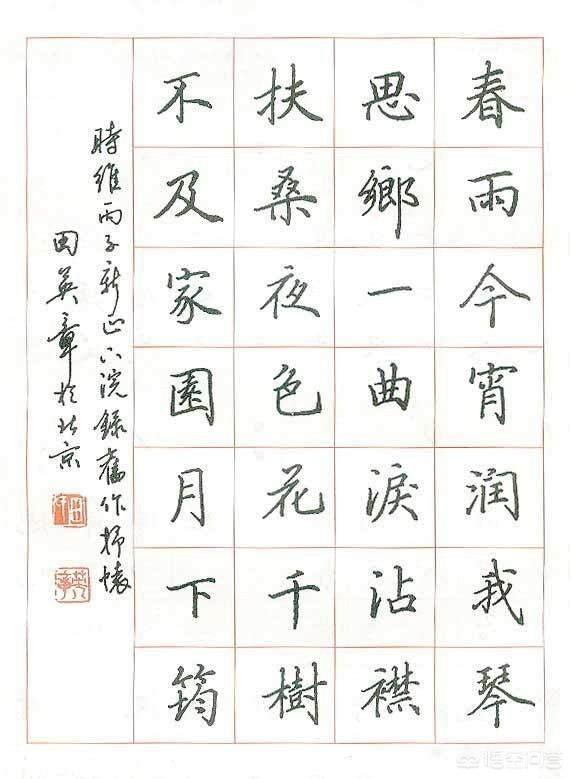 春雨今宵润我琴
思鄉一曲淚沾襟
扶桑夜色花千樹
不及家園月下筠
時維丙子新正下浣錄舊作抒懷
田英章於北京
悟空问答